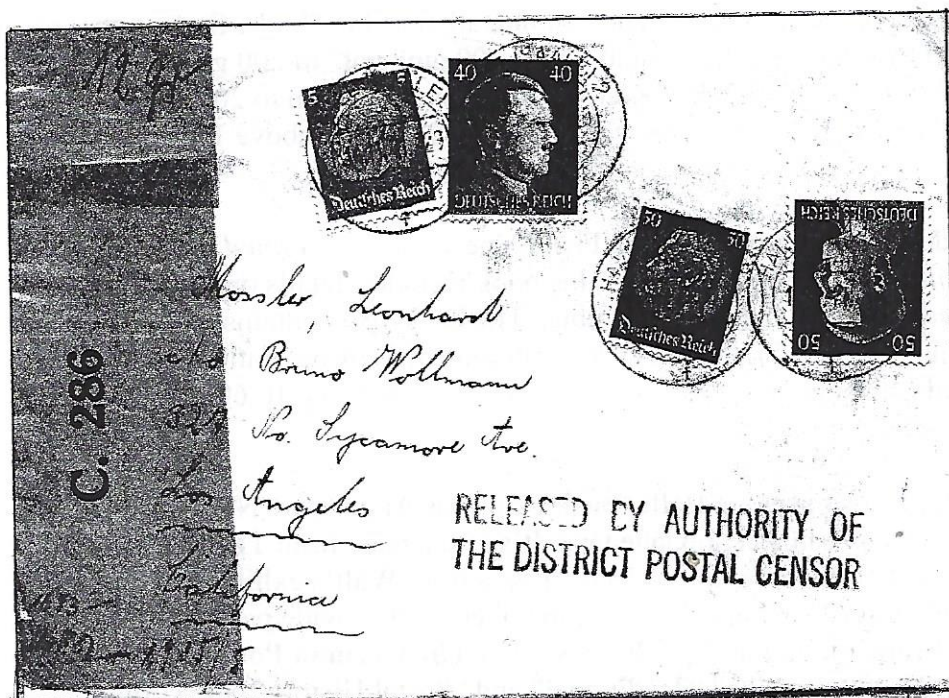 12 gr
5 5
Deutsches Reich
40 40
DEUTSCHES REICH
50 50
Deutsches Reich
DEUTSCHES REICH
50 50
C. 286
Mossler Leonhard
Bruno Wollmann
No. Sycamore Ave.
Los Angeles
California
RELEASED BY AUTHORITY OF
THE DISTRICT POSTAL CENSOR